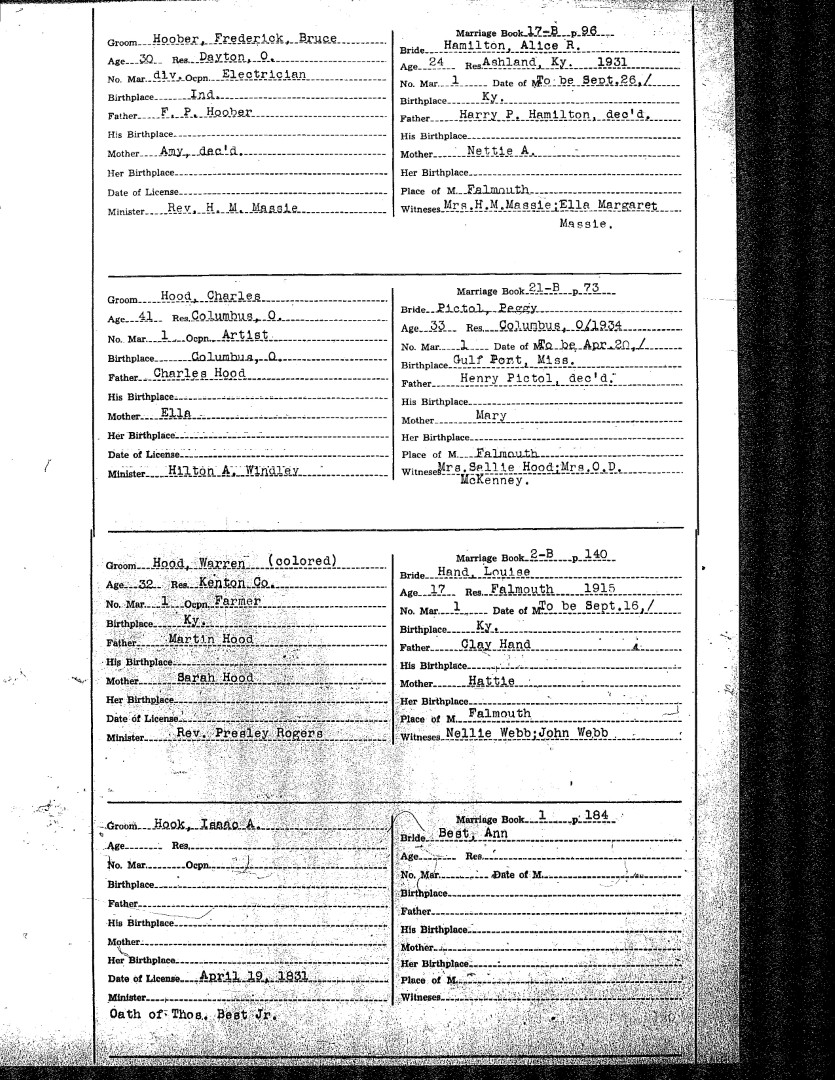 Groom Hoober, Frederick, Bruce
Age 30 Res. Dayton, O.
No. Mar. div. Ocpn. Electrician
Birthplace Ind.
Father F. P. Hoober
His Birthplace
Mother Amy, dec'd.
Her Birthplace
Date of License
Minister Rev. H. M. Massie
Marriage Book 17-B p. 96
Bride Hamilton, Alice R.
Age 24 Res Ashland, Ky. 1931
No. Mar. 1 Date of M. To be Sept.26,/
Birthplace Ky.
Father Harry P. Hamilton, dec'd.
His Birthplace
Mother Nettie A.
Her Birthplace
Place of M. Falmouth
Witneses Mrs.H.M.Massie;Ella Margaret
Massie.
Groom Hood, Charles
Age 41 Res. Columbus, O.
No. Mar. 1 Ocpn. Artist
Birthplace Columbus, O.
Father Charles Hood
His Birthplace
Mother Ella
Her Birthplace
Date of License
Minister Hilton A. Windley
Marriage Book 21-B p. 73
Bride Pictol, Peggy
Age 33 Res. Columbus, O/1934
No. Mar. 1 Date of M. To be Apr.20,/
Birthplace Gulf Port, Miss.
Father Henry Pictol, dec'd.
His Birthplace
Mother Mary
Her Birthplace
Place of M. Falmouth
Witneses Mrs.Sallie Hood;Mrs.O.D.
McKenney.
Groom Hood, Warren (colored)
Age 32 Res. Kenton Co.
No. Mar. 1 Ocpn. Farmer
Birthplace Ky.
Father Martin Hood
His Birthplace
Mother Sarah Hood
Her Birthplace
Date of License
Minister Rev. Presley Rogers
Marriage Book 2-B p. 140
Bride Hand, Louise
Age 17 Res. Falmouth 1915
No. Mar. 1 Date of M. To be Sept.16,/
Birthplace Ky.
Father Clay Hand
His Birthplace
Mother Hattie
Her Birthplace
Place of M. Falmouth
Witneses Nellie Webb;John Webb
Groom Hook, Isaac A.
Age Res.
No. Mar. Ocpn.
Birthplace
Father
His Birthplace
Mother
Her Birthplace
Date of License April 19, 1831
Minister
Oath of Thos. Best Jr.
Marriage Book 1 p. 184
Bride Best, Ann
Age Res.
No. Mar. Date of M.
Birthplace
Father
His Birthplace
Mother
Her Birthplace
Place of M.
Witneses